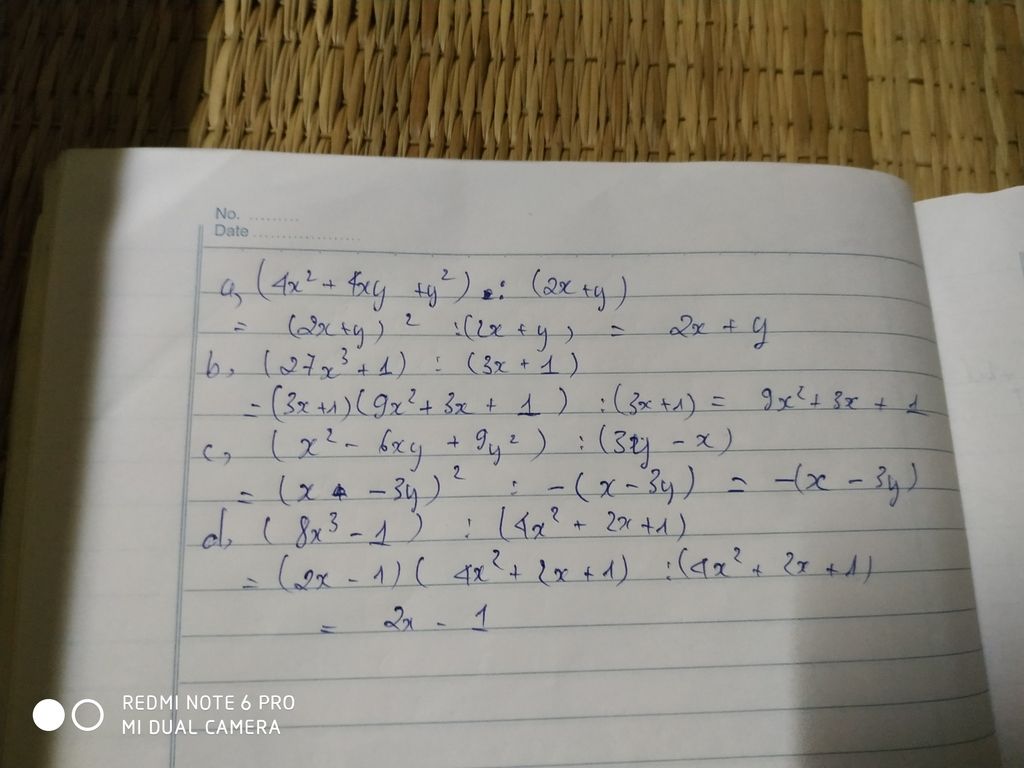 No. .........
Date ..................
a, (4x² + 4xy + y²) : (2x + y)
= (2x + y)² : (2x + y) = 2x + y
b, (27x³ + 1) : (3x + 1)
= (3x + 1)(9x² + 3x + 1) : (3x + 1) = 9x² + 3x + 1
c, (x² - 6xy + 9y²) : (3y - x)
= (x - 3y)² : -(x - 3y) = -(x - 3y)
d, (8x³ - 1) : (4x² + 2x + 1)
= (2x - 1)(4x² + 2x + 1) : (4x² + 2x + 1)
= 2x - 1
REDMI NOTE 6 PRO
MI DUAL CAMERA